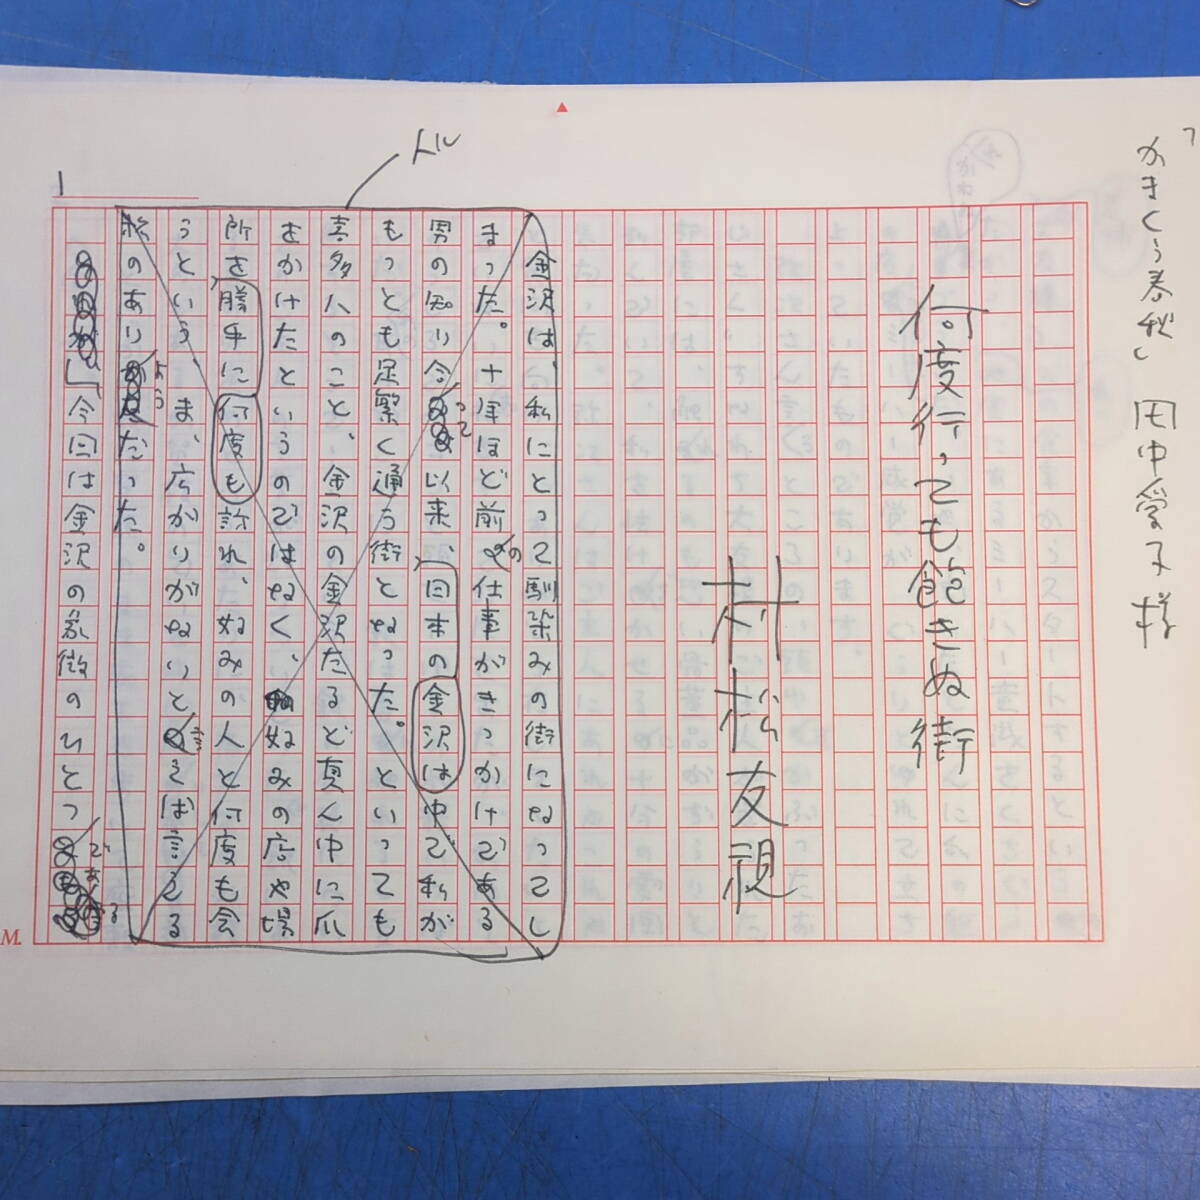 「かまくら春秋」田中愛子様
何度行っても飽きぬ街
村松友視
トル
1
金沢は、私にとって馴染みの街になってし
まった。十年ほど前の仕事がきっかけである
男の知り合って以来、日本の金沢は中で私が
もっとも足繁く通う街となった。といっても
喜多八のこと、金沢の金沢たるど真ん中に爪
をかけたというのではなく、好みの店や場
所を、勝手に何度も訪れ、好みの人と何度も会
うという、ま、広がりがないと言えば言える
私のありようだった。
今回は金沢の象徴のひとつである
M.